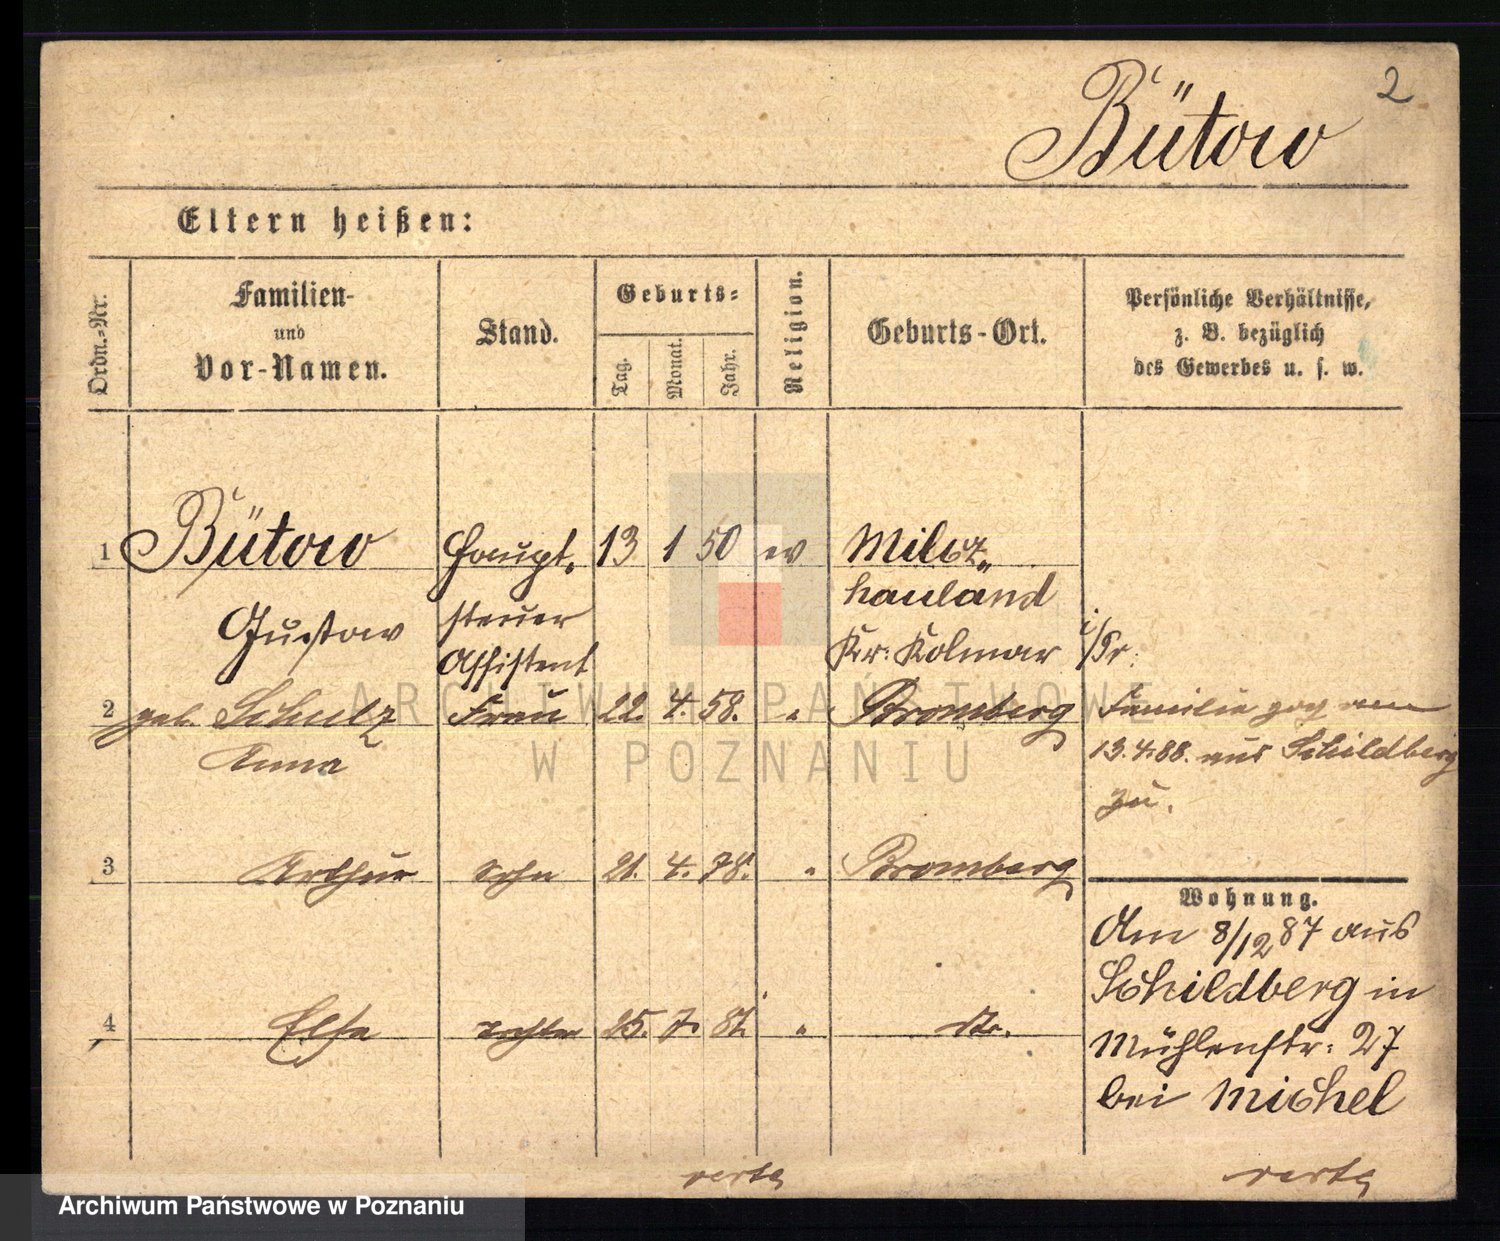 2
Bütow
Eltern heißen:
Ordn.-Nr.
Familien-
und
Vor-Namen.
Stand.
Geburts-
Tag.
Monat.
Jahr.
Religion.
Geburts-Ort.
Persönliche Verhältnisse,
z. B. bezüglich
des Gewerbes u. s. w.
1 Bütow Haupt- 13 1 50 ev
hauland
Gustav steuer
Assistent Kr: Kolmar i/Pr.
2 geb. Schulz Frau 22. 4. 58. " Bromberg
Anna
Familie zog am
13.4.88. aus Schildberg
zu.
3 Arthur Sohn 21. 4. 78. " Bromberg
4 Elsa Tochter 25. 7. 81. " do.
Wohnung.
Am 8/12 87 aus
Schildberg in
Mühlenstr: 27
bei Michel
verte
verte
ARCHIWUM PAŃSTWOWE
W POZNANIU
Archiwum Państwowe w Poznaniu